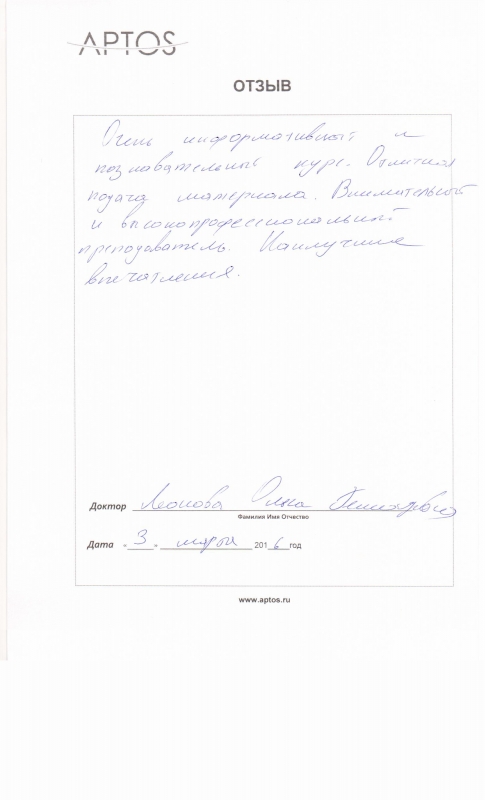 APTOS
ОТЗЫВ
Очень информативный и
познавательный курс. Отличная
подача материала. Внимательный
и высокопрофессиональный
преподаватель. Наилучшие
впечатления.
Доктор Леонова Ольга
Фамилия Имя Отчество
Дата «3» марта 2016 год
www.aptos.ru